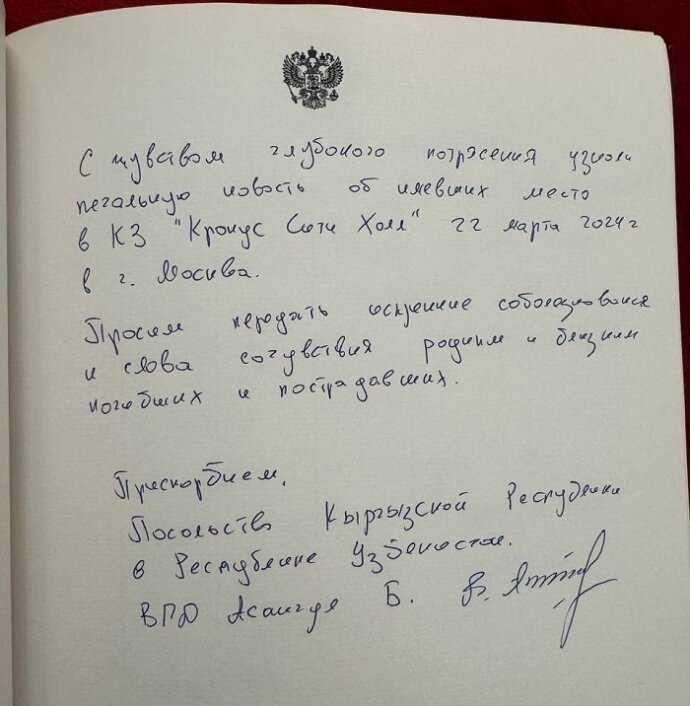 С чувством глубокого потрясения узнали
печальную новость об имевших место
в КЗ "Крокус Сити Холл" 22 марта 2024 г
в г. Москва.
Просим передать искренние соболезнования
и слова сочувствия родным и близким
погибших и пострадавших.
Прискорбием,
Посольство Кыргызской Республики
в Республике Узбекистан.
ВПД Асангул Б.